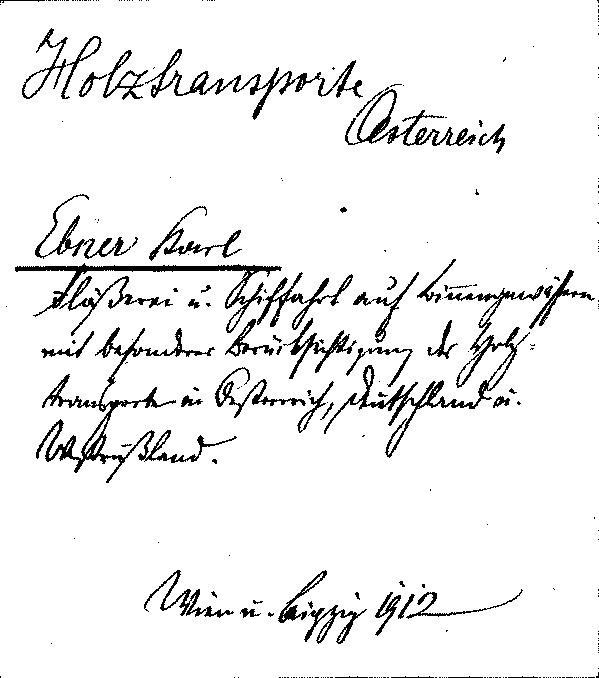 Holztransporte
Oesterreich
Ebner Karl
Flößerei u. Schiffahrt auf Binnengewässern
mit besonderer Berücksichtigung der Holz-
transporte in Oesterreich, Deutschland u.
Westrußland.
Wien u. Leipzig 1912